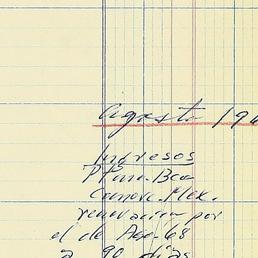 Agosto 196
Ingresos
Ptmo. Bco
Comerc. Mex.
renovacion por
el de Ago-68
a 90 dias